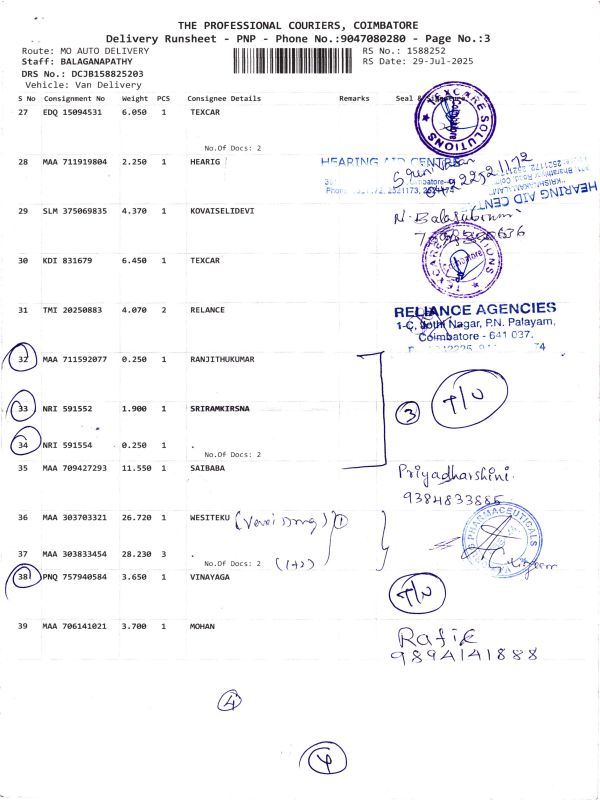 THE PROFESSIONAL COURIERS, COIMBATORE
Delivery Runsheet - PNP - Phone No.:9047080280 - Page No.:3
Route: MO AUTO DELIVERY RS No.: 1588252
Staff: BALAGANAPATHY RS Date: 29-Jul-2025
DRS No.: DCJB158825203
Vehicle: Van Delivery
S No Consignment No Weight PCS Consignee Details Remarks Seal &
27 EDQ 15094531 6.050 1 TEXCAR
TEXCARE SOLUTIONS
Coimbatore
No.Of Docs: 2
28 MAA 711919804 2.250 1 HEARIG
HEARING AID CENTRE
HEARING AID CENT
29 SLM 375069835 4.370 1 KOVAISELIDEVI
30 KDI 831679 6.450 1 TEXCAR
TEXCARE SOLUTIONS
Coimbatore
31 TMI 20250883 4.070 2 RELANCE
RELIANCE AGENCIES
1-C, Jothi Nagar, P.N. Palayam,
Coimbatore - 641 037.
32 MAA 711592077 0.250 1 RANJITHUKUMAR
33 NRI 591552 1.900 1 SRIRAMKIRSNA
3 T/N
34 NRI 591554 0.250 1 .
No.Of Docs: 2
35 MAA 709427293 11.550 1 SAIBABA
Priyadharshini.
9384833885
36 MAA 303703321 26.720 1 WESITEKU 1
PHARMACEUTICALS
37 MAA 303833454 28.230 3 .
No.Of Docs: 2 (1+2)
38 PNQ 757940584 3.650 1 VINAYAGA
T/N
39 MAA 706141021 3.700 1 MOHAN
Rafic
9894141888
4
4